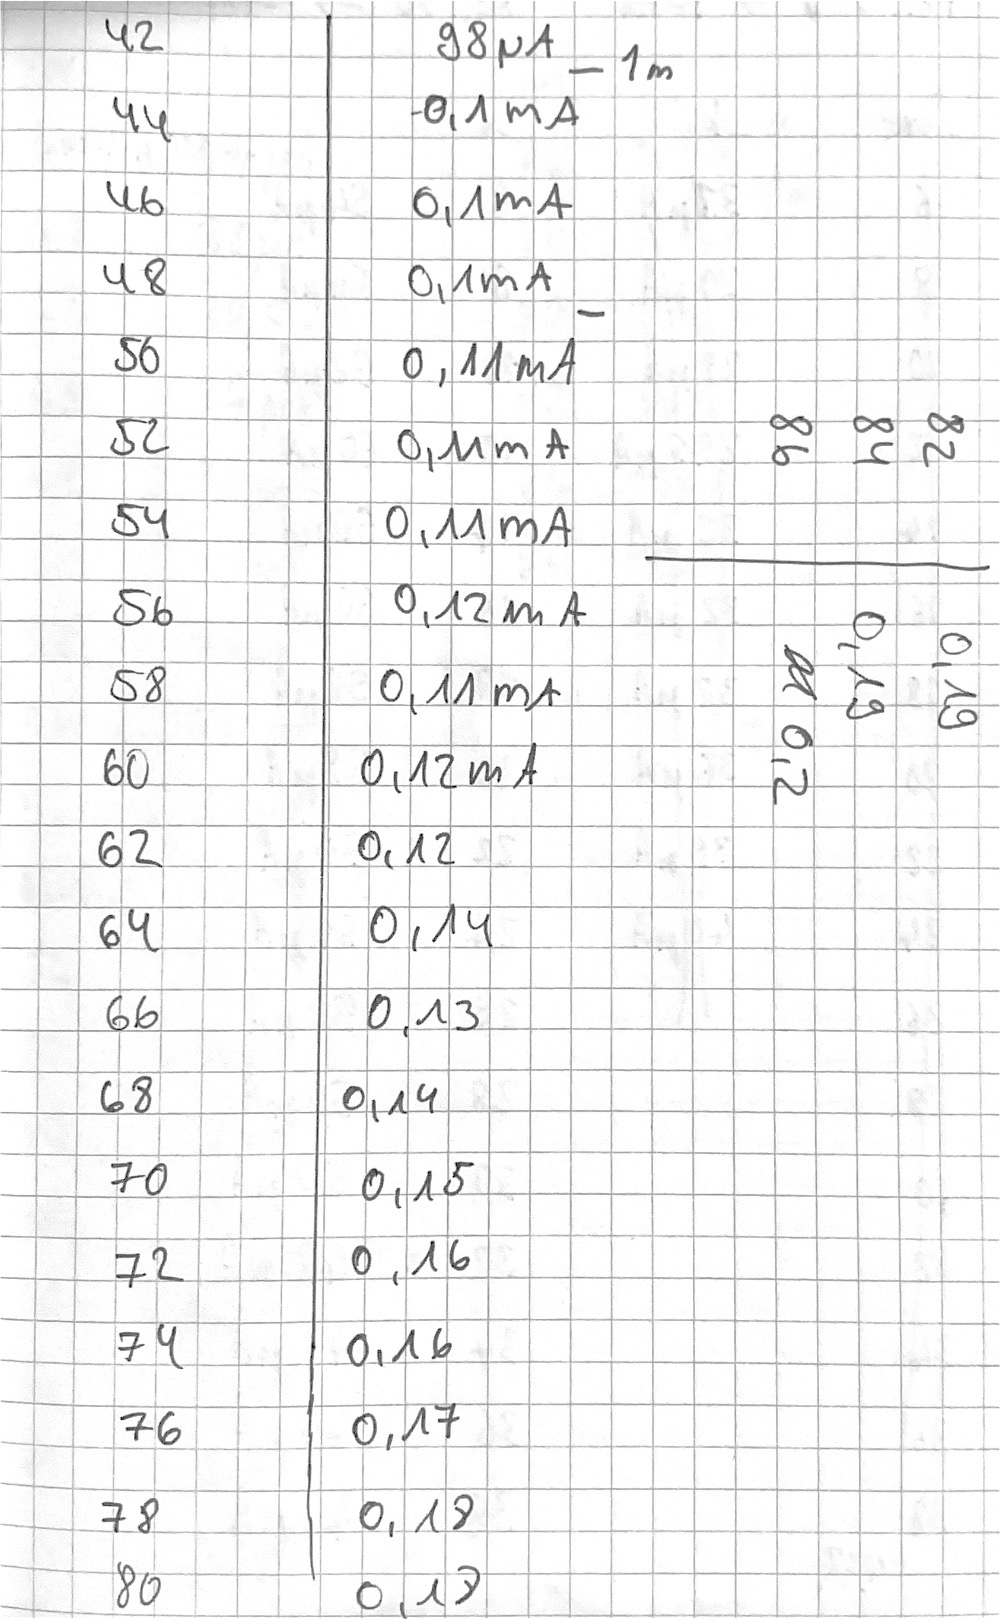 42 98µA
– 1m
44 0,1mA
46 0,1mA
48 0,1mA –
50 0,11mA
52 0,11mA
54 0,11mA
56 0,12mA
58 0,11mA
60 0,12mA
62 0,12
64 0,14
66 0,13
68 0,14
70 0,15
72 0,16
74 0,16
76 0,17
78 0,18
80
82 0,19
84 0,19
86 0,2